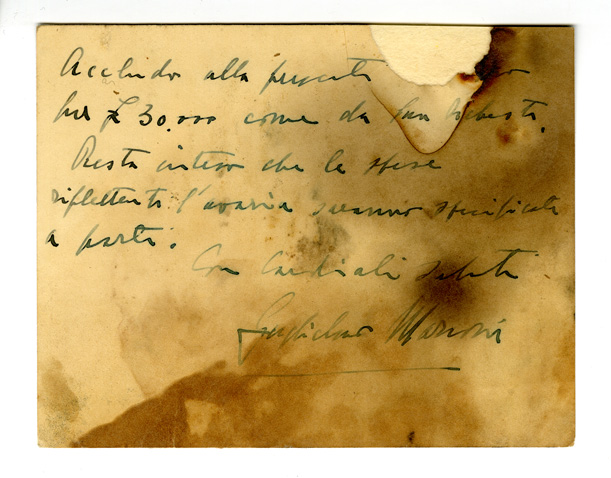 Accludo alla presente
per £ 30.000 come da Sua richiesta.
Resta inteso che le spese
riflettenti l'avaria saranno specificate
a parte.
Con cordiali saluti
Guglielmo Marconi